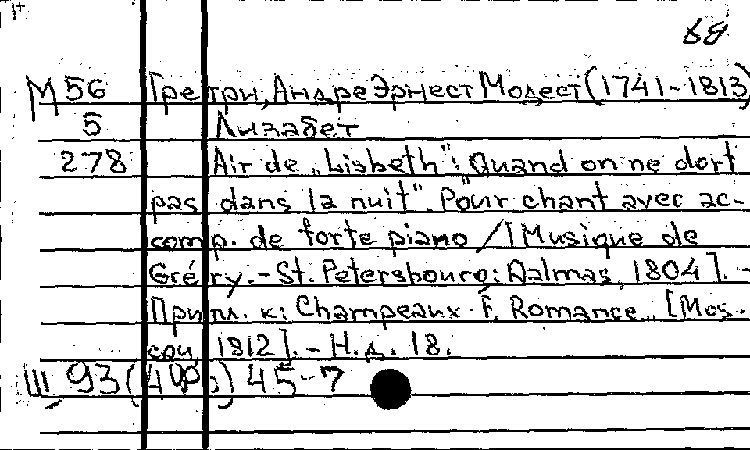 68
М 56 Гретри, Андре Эрнест Модест (1741-1813)
5 Лизабет
278 Air de „Lisbeth": „Quand on ne dort
pas dans la nuit". Pour chant avec ac-
comp. de forte piano / [Musique de
Grétry. - St. Petersbourg: Dalmas, 1804]. -
Припл. к: Champeaux F. Romance... [Mos-
cou, 1812]. - Н.д. 18.
Ш 93(4Фр) 45-7